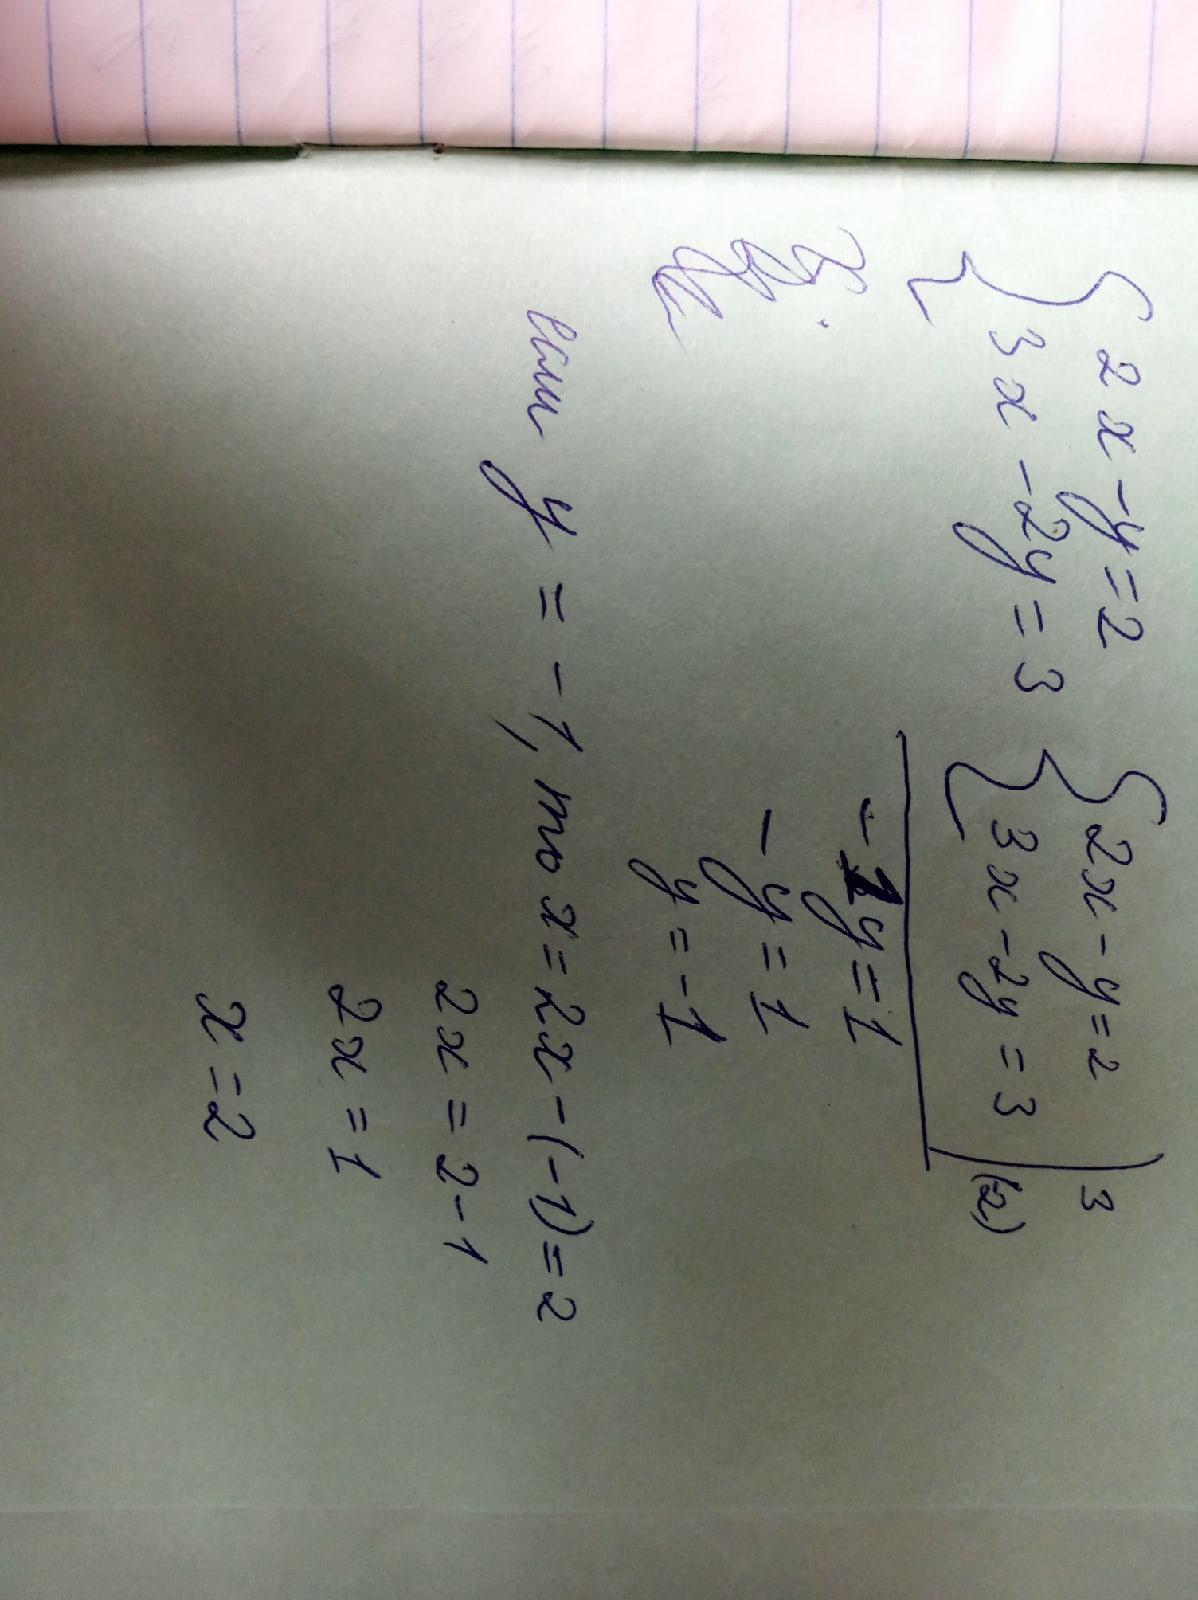 { 2x - y = 2
{ 3x - 2y = 3
{ 2x - y = 2 | 3
{ 3x - 2y = 3 | (2)
-1y = 1
-y = 1
y = -1
если y = -1, то x = 2x - (-1) = 2
2x = 2 - 1
2x = 1
x = 2